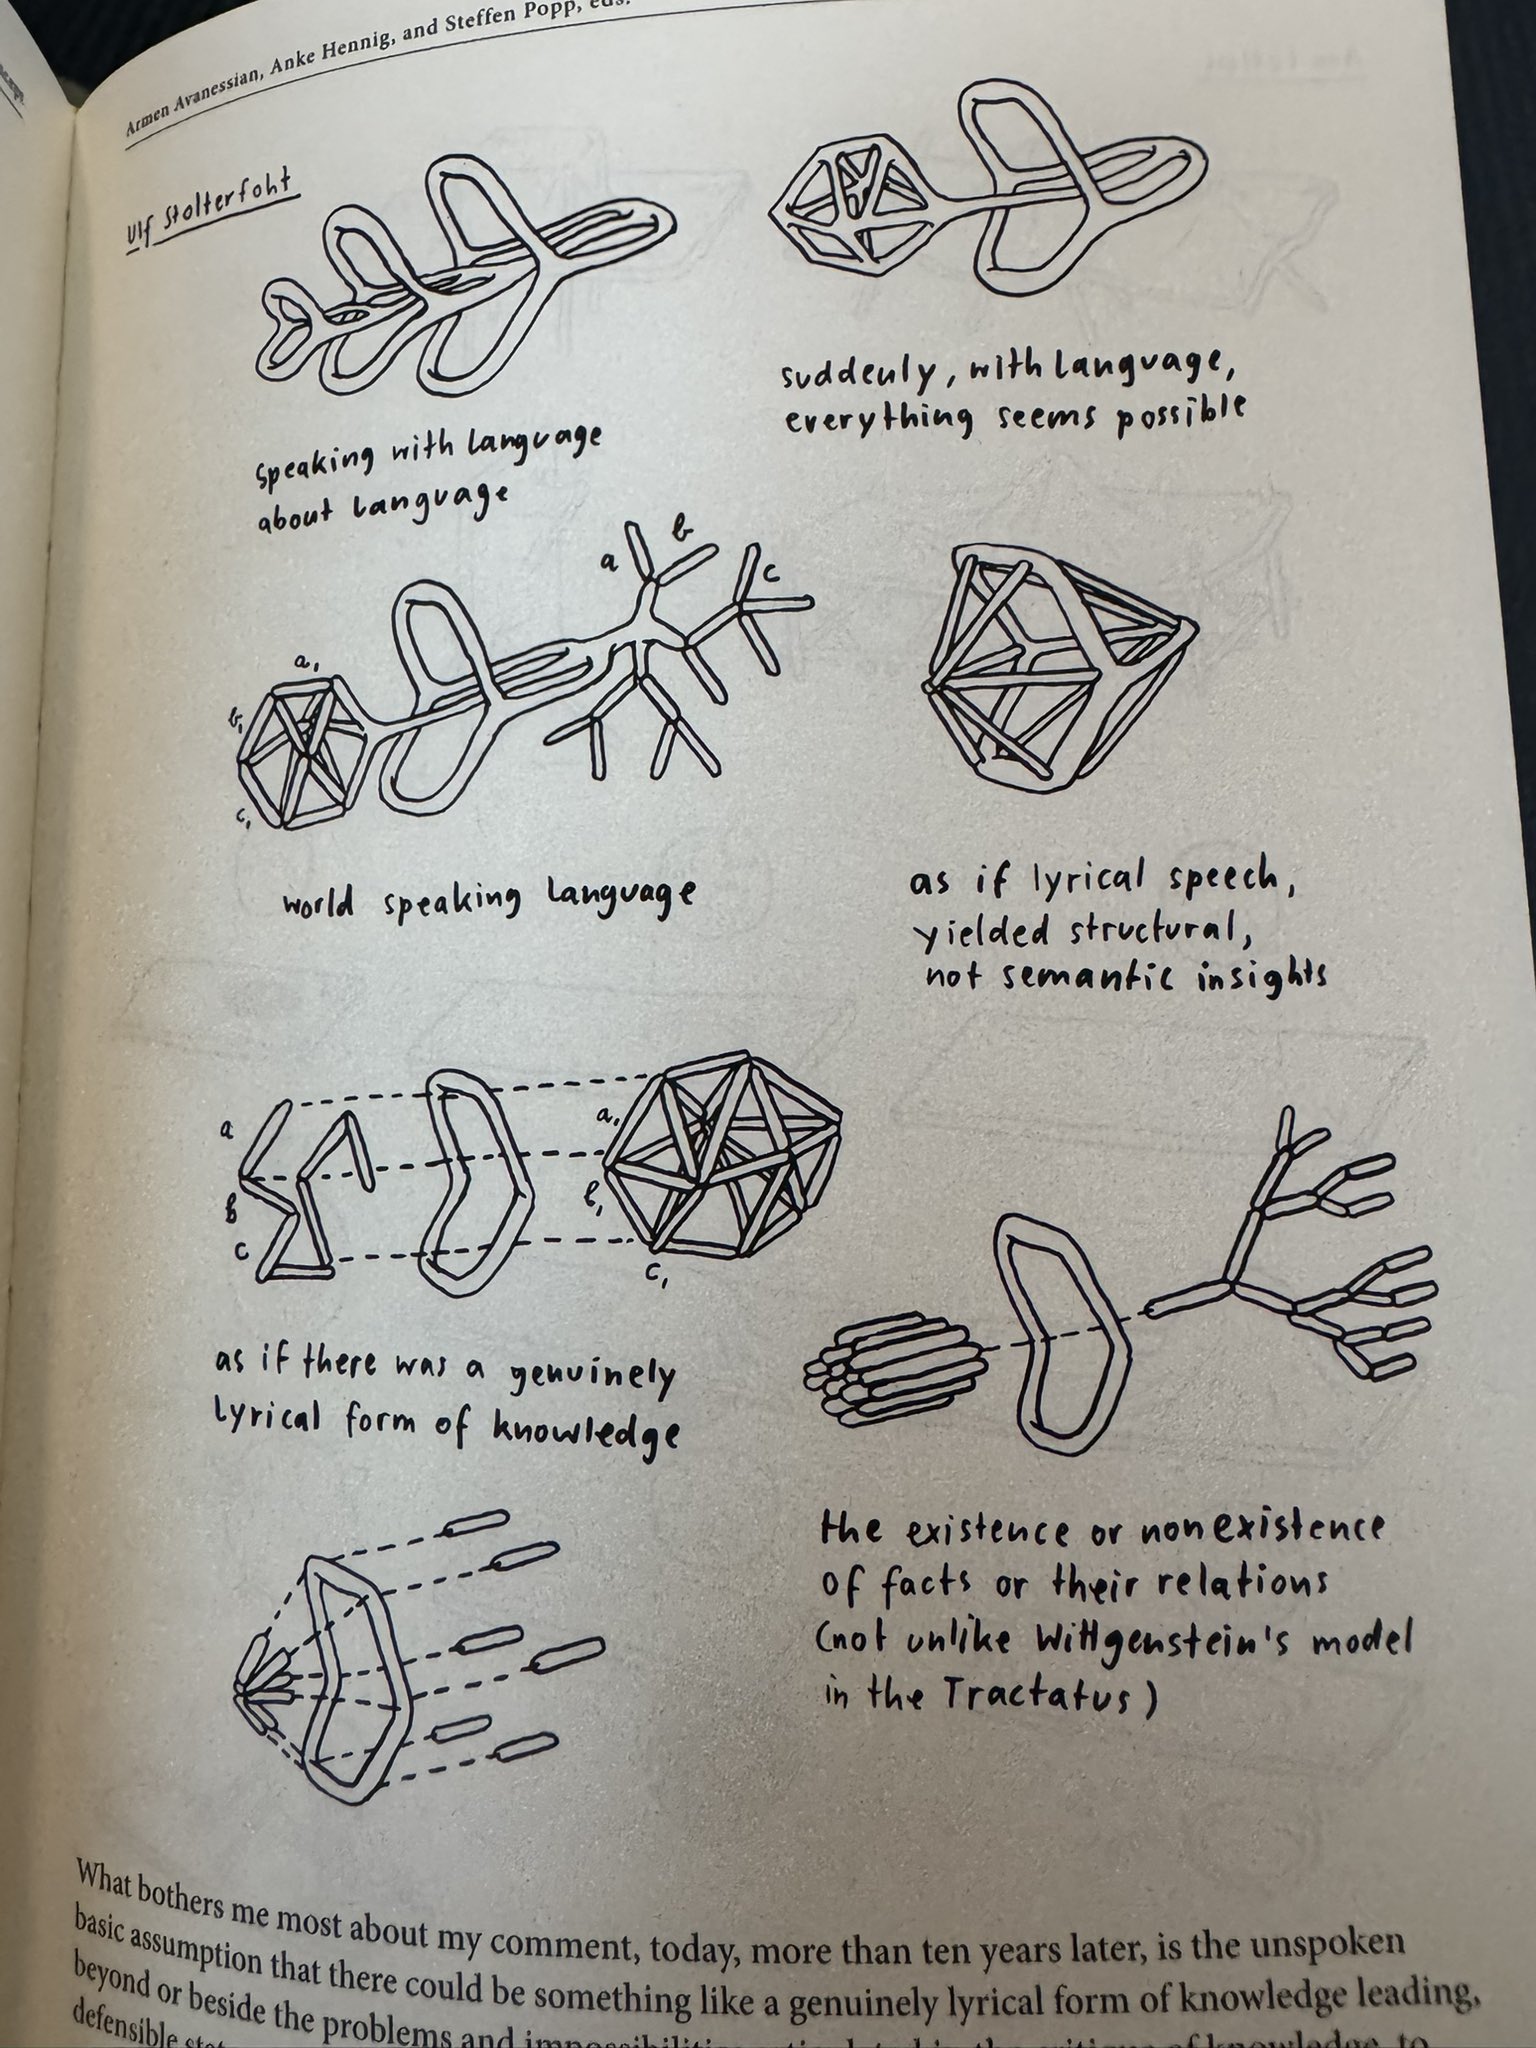 Armen Avanessian, Anke Hennig, and Steffen Popp, eds.
Ulf Stolterfoht
speaking with language
about language
suddenly, with language,
everything seems possible
a
b
c
a,
b,
c,
world speaking language
as if lyrical speech,
yielded structural,
not semantic insights
a
b
c
a,
b,
c,
as if there was a genuinely
lyrical form of knowledge
the existence or nonexistence
of facts or their relations
(not unlike Wittgenstein's model
in the Tractatus)
What bothers me most about my comment, today, more than ten years later, is the unspoken
basic assumption that there could be something like a genuinely lyrical form of knowledge leading,
beyond or beside the problems and in the critique of knowledge, to
defensible